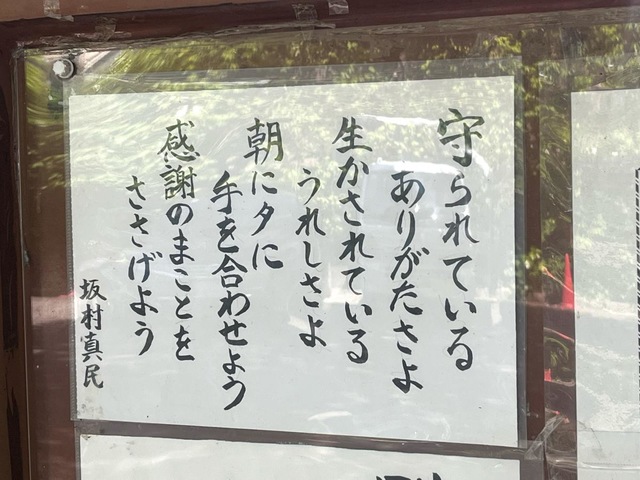 守られている
ありがたさよ
生かされている
うれしさよ
朝に夕に
手を合わせよう
感謝のまことを
ささげよう
坂村真民